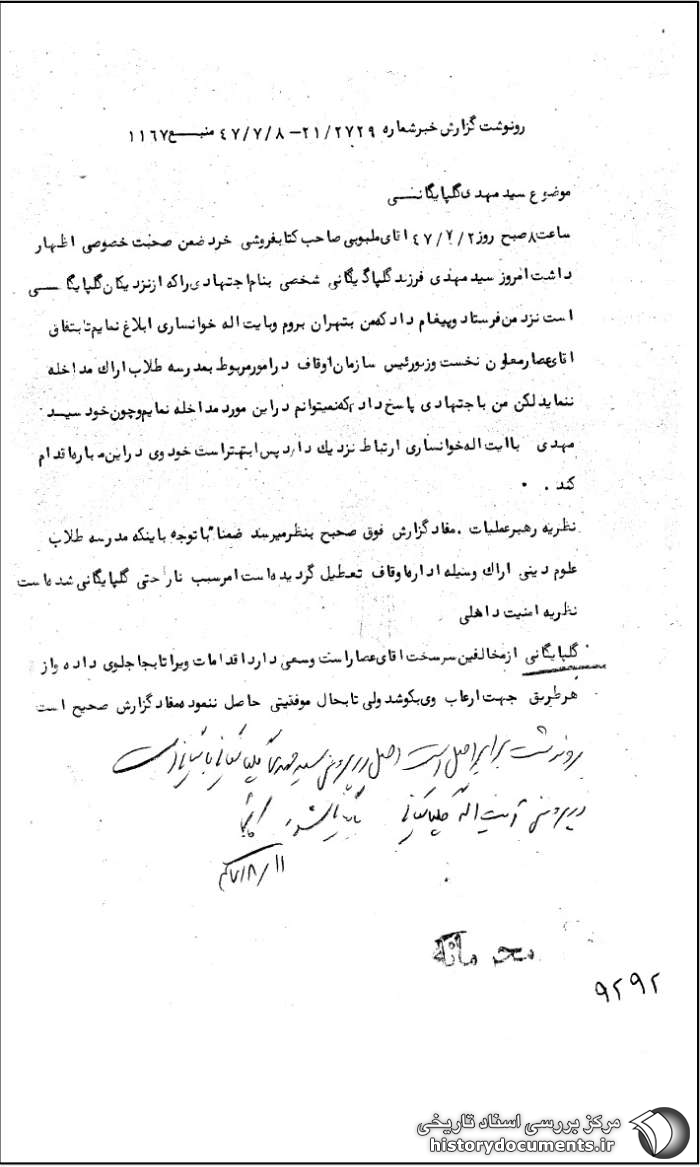 رونوشت گزارش خبر شماره ۲۱/۲۷۲۹ – ۴۷/۷/۸ منبع ۱۱۶۷
موضوع سید مهدی گلپایگانی
ساعت ۸ صبح روز ۴۷/۷/۲ اقای طبوبی صاحب کتابفروشی خرد ضمن صحبت خصوصی اظهار
داشت امروز سید مهدی فرزند گلپاگیگانی شخصی بنام اجتهادی را که از نزدیکان گلپایگانی
است نزد من فرستاد و پیغام داد که من بتهران بروم و بایت اله خوانساری ابلاغ نمایم تا بتفاق
اقای عصار معاون نخست وزیر و رئیس سازمان اوقاف در امور مربوط بمدرسه طلاب اراک مداخله
ننماید لکن من با جتهادی پاسخ دادم که نمیتوانم در این مورد مداخله نمایم و چون خود سید
مهدی با ایت اله خوانساری ارتباط نزدیک دارد پس ابهتر است خود وی در این باره اقدام
کند .
نظریه رهبر عملیات . مفاد گزارش فوق صحیح بنظر میرسد ضمنا" با توجه باینکه مدرسه طلاب
علوم دینی اراک وسیله اداره اوقاف تعطیل گردیده است امر سبب ناراحتی گلپایگانی شده است
نظریه امنیت داخلی
گلپایگانی از مخالفین سرسخت اقای عصار است و سعی دارد اقدامات ویرا تا بجا جلوی داده و از
هر طریق جهت ارعاب وی بکوشد ولی تا بحال موفقیتی حاصل ننموده مفاد گزارش صحیح است
رونوشت برابر اصل است اصل در پرونده سید مهدی گلپایگانی بایگانی است
در پرونده آیت اله گلپایگانی بایگانی شود
۴۷/۸/۱۱
محرمانه
۹۲۹۲
مرکز بررسی اسناد تاریخی
historydocuments.ir